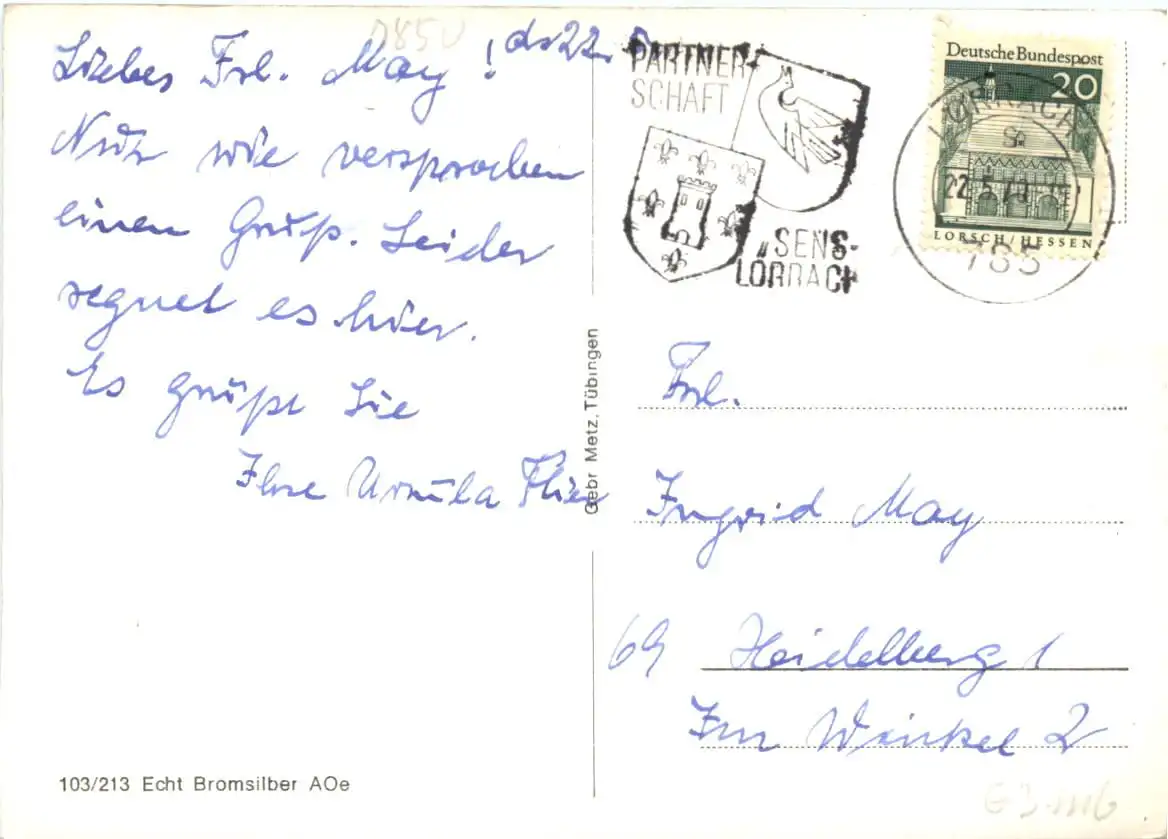 D85U
Liebes Frl. May! d. 22. 5.
Nur wie versprochen
einen Gruß. Leider
regnet es hier.
Es grüßt Sie
Ihre Ursula
PARTNER-
SCHAFT
„SENS-
LÖRRACH
Deutsche Bundespost
20
LORSCH/HESSEN
LÖRRACH
22.5.
785
Gebr. Metz, Tübingen
Frl.
Ingrid May
69 Heidelberg 1
Im Winkel 2
103/213 Echt Bromsilber AOe